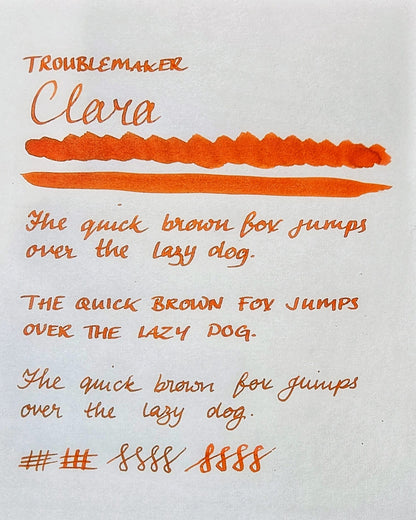 TROUBLEMAKER
Clara
The quick brown fox jumps
over the lazy dog.
THE QUICK BROWN FOX JUMPS
OVER THE LAZY DOG.
The quick brown fox jumps
over the lazy dog.